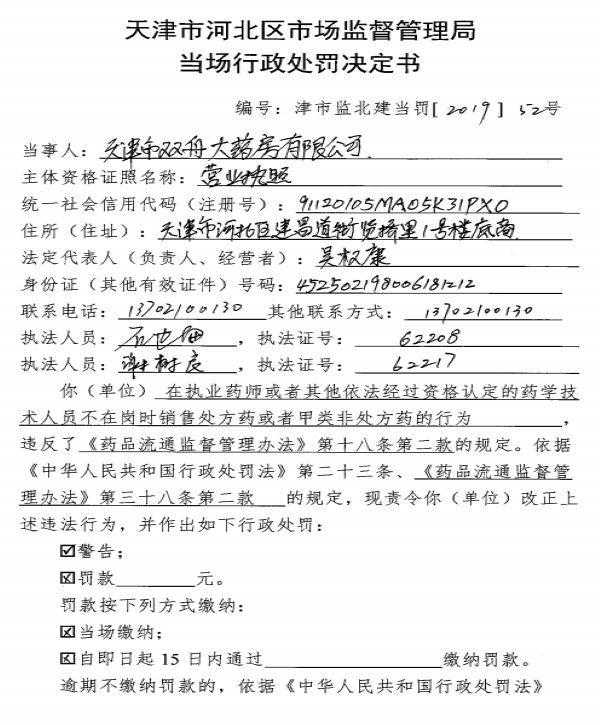 天津市河北区市场监督管理局
当场行政处罚决定书
编号：津市监北建当罚[2019]52号
当事人：天津市双舟大药房有限公司
主体资格证照名称：营业执照
统一社会信用代码（注册号）：91120105MA05K31PX0
住所（住址）：天津市河北区建昌道街贤桥里1号楼底商
法定代表人（负责人、经营者）：吴权康
身份证（其他有效证件）号码：452502198006181212
联系电话：13702100130 其他联系方式：13702100130
执法人员：，执法证号：62208
执法人员：谢树良，执法证号：62217
你（单位）在执业药师或者其他依法经过资格认定的药学技
术人员不在岗时销售处方药或者甲类非处方药的行为，
违反了《药品流通监督管理办法》第十八条第二款的规定。依据
《中华人民共和国行政处罚法》第二十三条、《药品流通监督管
理办法》第三十八条第二款的规定，现责令你（单位）改正上
述违法行为，并作出如下行政处罚：
☑警告；
☑罚款________元。
罚款按下列方式缴纳：
☑当场缴纳；
☑自即日起15日内通过________________缴纳罚款。
逾期不缴纳罚款的，依据《中华人民共和国行政处罚法》